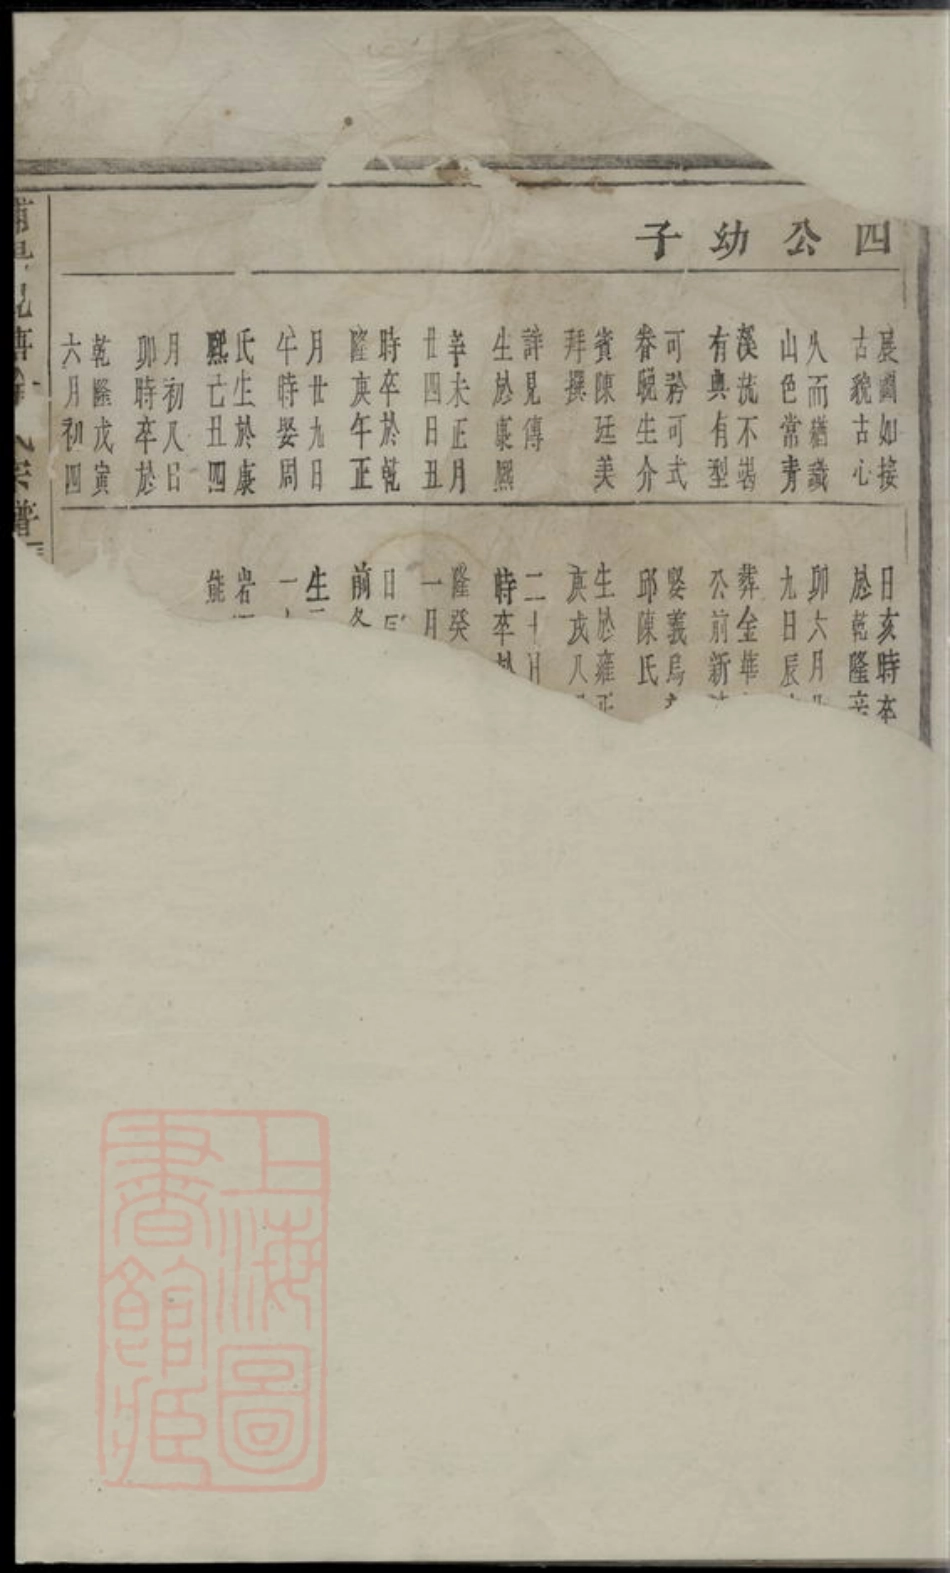 四公幼子
晨國如接
古貌古心
久而猶識
山色常青
溪流不竭
有典有型
可矜可式
眷晚生介
賓陳廷美
拜撰
詳見傳
生於康熙
辛未正月
廿四日丑
時卒於乾
隆庚午正
月廿九日
午時娶周
氏生於康
熙己丑四
月初八日
卯時卒於
乾隆戊寅
六月初四
日亥時卒
於乾隆辛
卯六月
九日辰
葬金華
公前新
娶義烏
邱陳氏
生於雍正
庚戌八
二十日
時卒於
隆癸
一月
日辰
前冬
生
一
岩
熊
宗譜
上海圖
書館藏